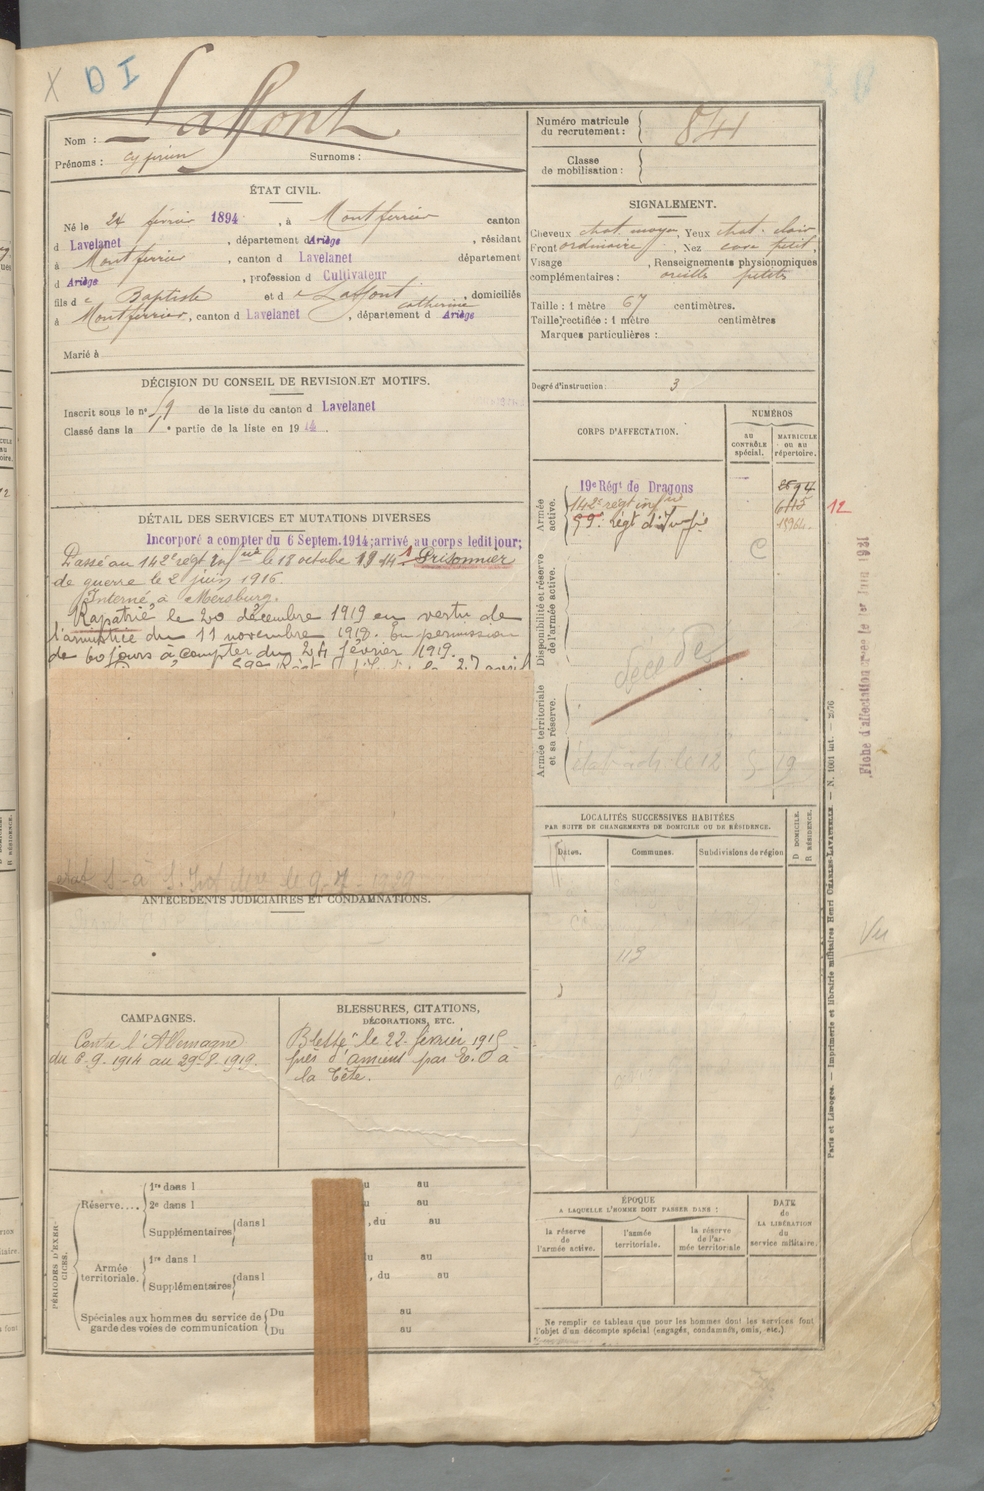 X D I
Laffont
Nom :
Prénoms : Cyprien Surnoms :
Numéro matricule du recrutement : 841
Classe de mobilisation :
ÉTAT CIVIL.
Né le 24 février 1894, à Montferrier canton
d Lavelanet, département d Ariège, résidant
à Montferrier, canton d Lavelanet département
d Ariège, profession d Cultivateur
fils d e Baptiste et d e Laffont catherine, domiciliés
à Montferrier, canton d Lavelanet, département d Ariège
Marié à
SIGNALEMENT.
Cheveux chat. moyen, Yeux chat. clair
Front ordinaire, Nez cave petit,
Visage , Renseignements physionomiques
complémentaires : oreille petite
Taille : 1 mètre 67 centimètres.
Taille rectifiée : 1 mètre centimètres
Marques particulières :
Degré d'instruction : 3
DÉCISION DU CONSEIL DE REVISION ET MOTIFS.
Inscrit sous le n° 59 de la liste du canton d Lavelanet
Classé dans la 1e partie de la liste en 1914.
CORPS D'AFFECTATION.
NUMÉROS
AU CONTRÔLE spécial.
MATRICULE ou au répertoire.
Armée active.
19e Régt de Dragons
142e régt infrie
99e Régt d'Infie
12
C
Disponibilité et réserve de l'armée active.
décédé
Armée territoriale et sa réserve.
DÉTAIL DES SERVICES ET MUTATIONS DIVERSES
Incorporé a compter du 6 Septem. 1914; arrivé au corps ledit jour;
Passé au 142e régt infrie le 18 octobre 1914. Prisonnier
de guerre le 2 juin 1916.
Interné à Mersburg.
Rapatrié le 20 décembre 1919 en vertu de
l'armistice du 11 novembre 1918. En permission
de 60 jours à compter du 24 février 1919.
ANTÉCÉDENTS JUDICIAIRES ET CONDAMNATIONS.
LOCALITÉS SUCCESSIVES HABITÉES
PAR SUITE DE CHANGEMENTS DE DOMICILE OU DE RÉSIDENCE.
Dates.
Communes.
Subdivisions de région
D DOMICILE.
R RÉSIDENCE.
113
Vu
CAMPAGNES.
Contre l'Allemagne
du 6-9-1914 au 29-8-1919.
BLESSURES, CITATIONS,
DÉCORATIONS, ETC.
Blessé le 22 février 1915
près d'amiens par E. O à
la tête.
PÉRIODES D'EXERCICES.
Réserve....
1re dans l au
2e dans l au
Supplémentaires dans l , du au
Armée territoriale.
1re dans l au
Supplémentaires dans l , du au
Spéciales aux hommes du service de garde des voies de communication
Du au
Du au
ÉPOQUE
A LAQUELLE L'HOMME DOIT PASSER DANS :
la réserve de l'armée active.
l'armée territoriale.
la réserve de l'armée territoriale
DATE de LA LIBÉRATION du service militaire.
Ne remplir ce tableau que pour les hommes dont les services font
l'objet d'un décompte spécial (engagés, condamnés, omis, etc.)
Paris et Limoges. — Imprimerie et librairie militaires Henri CHARLES-LAVAUZELLE. — N. 1001 int. — 2/76